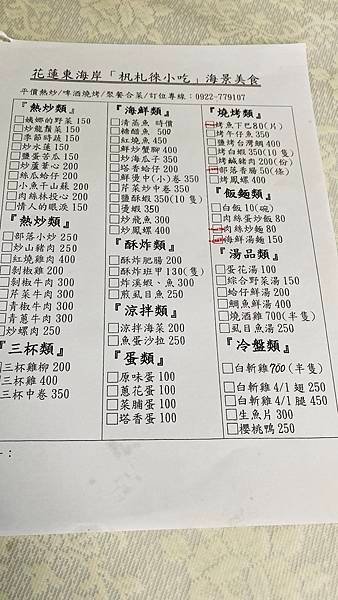 花蓮東海岸「机札徠小吃」海景美食
平價熱炒/啤酒燒烤/聚餐合菜/訂位專線:0922-779107
『熱炒類』
□姨娜的野菜 150
□炒龍鬚菜 150
□季節時蔬 150
□炒水蓮 150
□鹽蛋苦瓜 150
□炒蘆筆心 200
□絲瓜蛤仔 200
□小魚干山蘇 200
□肉絲林投心 200
□情人的眼淚 150
『熱炒類』
□部落小炒 250
□炒山豬肉 250
□紅燒雞肉 400
□剝椒雞 200
□剝椒牛肉 300
□芹菜牛肉 300
□青椒牛肉 300
□青蔥牛肉 300
□炒螺肉 250
『三杯類』
三杯雞柳 200
三杯雞 400
三杯中卷 350
『海鮮類』
□清蒸魚 時價
□糖醋魚 500
□紅燒魚 450
□鮮炒蟹腳 400
□炒海瓜子 350
□塔香蛤仔 200
□鮮燙中(小)卷 350
□芹菜炒中卷 350
□鹽酥蝦 350(10隻)
□燙蝦 350
□炒飛魚 300
□炒鳳螺 400
『酥炸類』
□酥炸肥腸 200
□酥炸班甲 130(隻)
□炸溪蝦、魚 300
□煎虱目魚 250
『涼拌類』
□涼拌海菜 200
□魚蛋沙拉 250
『蛋類』
□原味蛋 100
□蔥花蛋 100
□菜脯蛋 100
□塔香蛋 100
『燒烤類』
□烤魚下巴 80(片)
□烤午仔魚 350
□鹽烤台灣鯛 400
□烤白蝦 350(10隻)
□烤鹹豬肉 200(份)
□部落香腸 50(條)
□烤鳳螺 400
『飯麵類』
□白飯 10(碗)
□肉絲蛋炒飯 80
□肉絲炒麵 80
□海鮮湯麵 150
『湯品類』
□蛋花湯 100
□綜合野菜湯 150
□蛤仔鮮湯 200
□鯛魚鮮湯 400
□燒酒雞 700(半隻)
□虱目魚湯 250
『冷盤類』
□白斬雞 700(半隻)
□白斬雞 4/1 翅 250
□白斬雞 4/1 腿 450
□生魚片 300
□櫻桃鴨 250